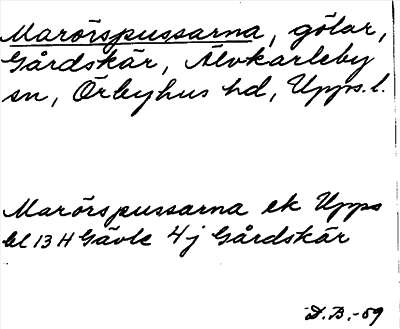 Marörspussarna, gölar,
Gårdskär, Älvkarleby
sn, Örbyhus hd, Upps.l.
Marörspussarna ek Upps
bl 13 H Gävle 4j Gårdskär
D.B.-59